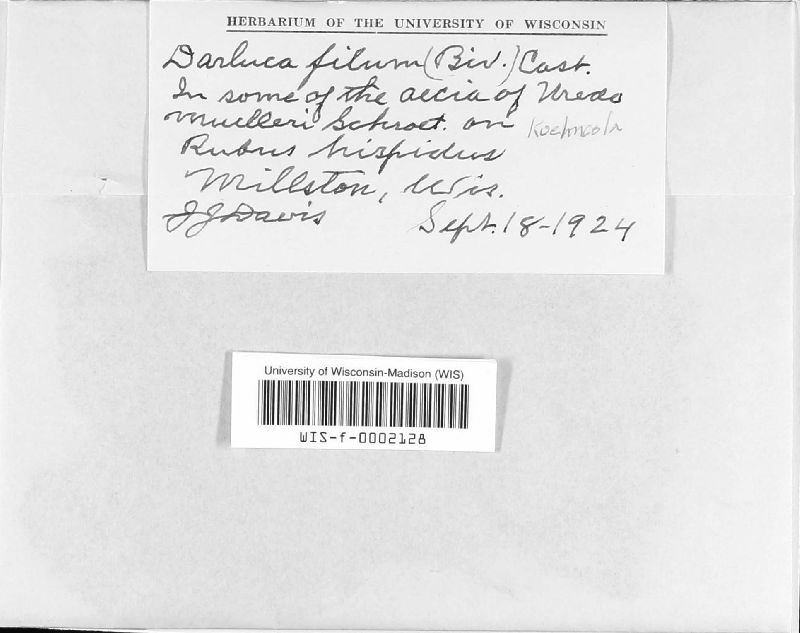 HERBARIUM OF THE UNIVERSITY OF WISCONSIN
Darluca filum (Biv.) Cast.
In some of the aecia of Uredo
muelleri Schroet. on
Rubus hispidus
Millston, Wis.
JJDavis Sept. 18-1924
University of Wisconsin-Madison (WIS)
WIS-f-0002128